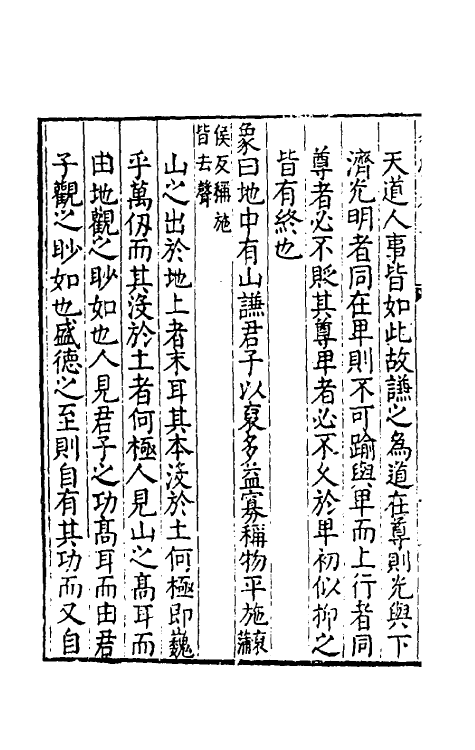 天道人事皆如此故謙之為道在尊則光與下
濟光明者同在卑則不可踰與卑而上行者同
尊者必不貶其尊卑者必不久於卑初似抑之
皆有終也
象曰地中有山謙君子以裒多益寡稱物平施裒蒲
侯反稱施
皆去聲
山之出於地上者末耳其本沒於土何極即巍
乎萬仭而其沒於土者何極人見山之髙耳而
由地觀之眇如也人見君子之功髙耳而由君
子觀之眇如也盛德之至則自有其功而又自